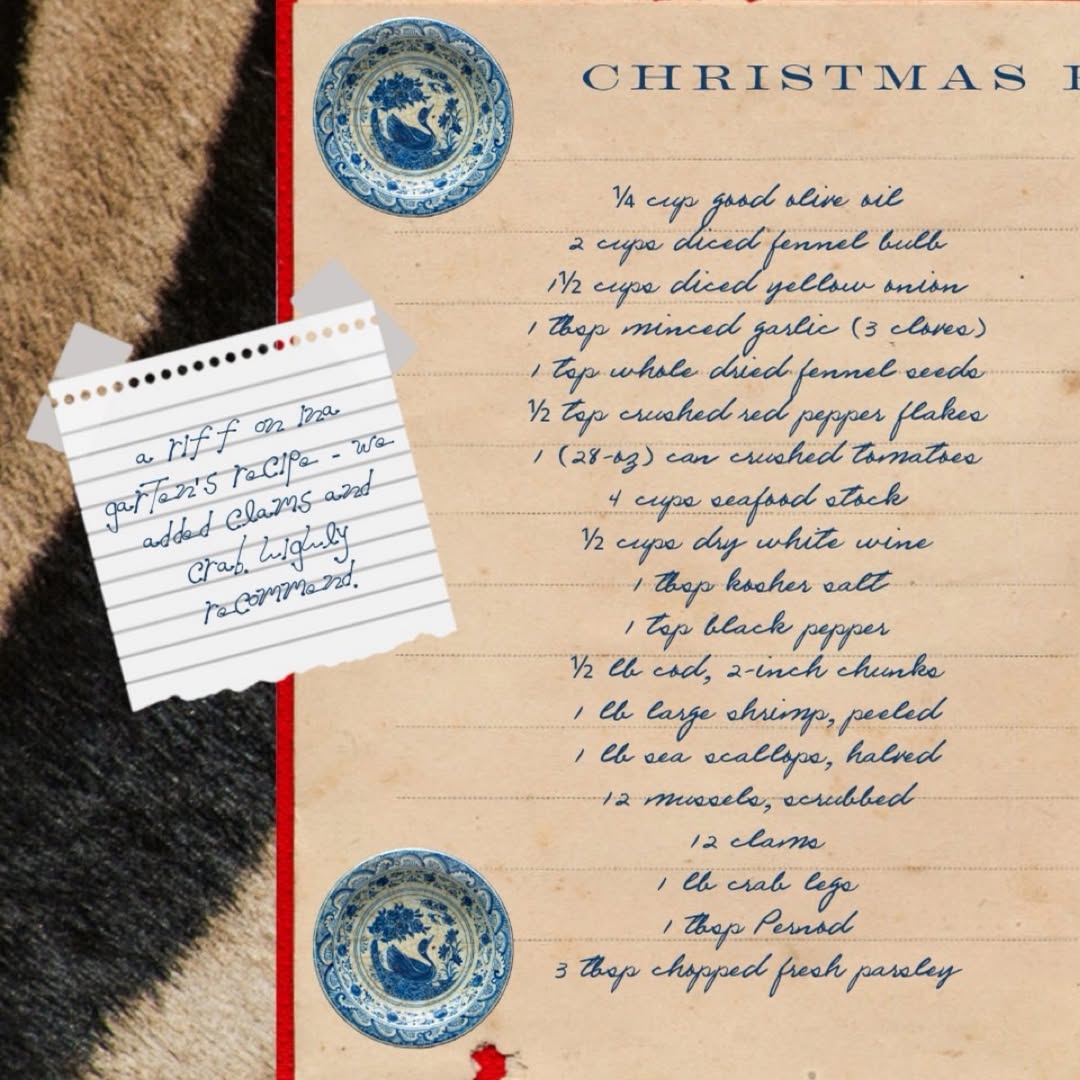 CHRISTMAS
¼ cup good olive oil
2 cups diced fennel bulb
1½ cups diced yellow onion
1 tbsp minced garlic (3 cloves)
1 tsp whole dried fennel seeds
½ tsp crushed red pepper flakes
1 (28-oz) can crushed tomatoes
4 cups seafood stock
½ cups dry white wine
1 tbsp kosher salt
1 tsp black pepper
½ lb cod, 2-inch chunks
1 lb large shrimp, peeled
1 lb sea scallops, halved
12 mussels, scrubbed
12 clams
1 lb crab legs
1 tbsp Pernod
3 tbsp chopped fresh parsley
a riff on ina
garten's recipe - we
added clams and
crab. highly
recommend.